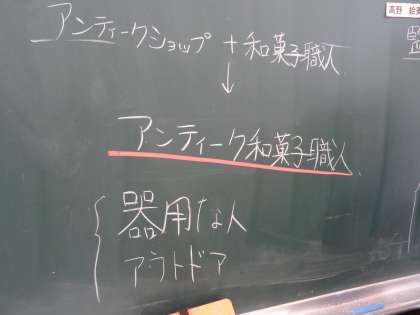 アンティークショップ + 和菓子職人
↓
アンティーク和菓子職人
器用な人
アウトドア
高野